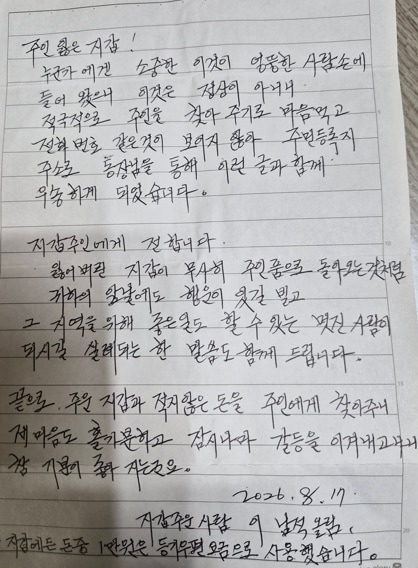 주인 잃은 지갑!
누군가에겐 소중한 이것이 엉뚱한 사람손에
들어 왔으니 이것은 정상이 아니니
적극적으로 주인을 찾아 주기로 마음먹고
전화번호 같은것이 보이지 않아 주민등록지
주소로 통장님을 통해 이런 글과 함께
우송하게 되었습니다.
지갑주인에게 전합니다
잃어버린 지갑이 무사히 주인품으로 돌아오는것처럼
귀하의 앞날에도 행운이 있길 빌고
그 지역을 위해 좋은일도 할 수 있는 멋진 사람이
되시길 실례되는 한 말씀도 함께 드립니다.
끝으로. 주운 지갑과 적지않은 돈을 주인에게 찾아주니
제 마음도 홀가분하고 잠시나마 갈등을 이겨내고나니
참 기분이 좋아 지는군요.
2026. 8. 17.
지갑주운 사람 이 남석 올림.
지갑에든 돈중 1만원은 등기우편요금으로 사용했습니다.